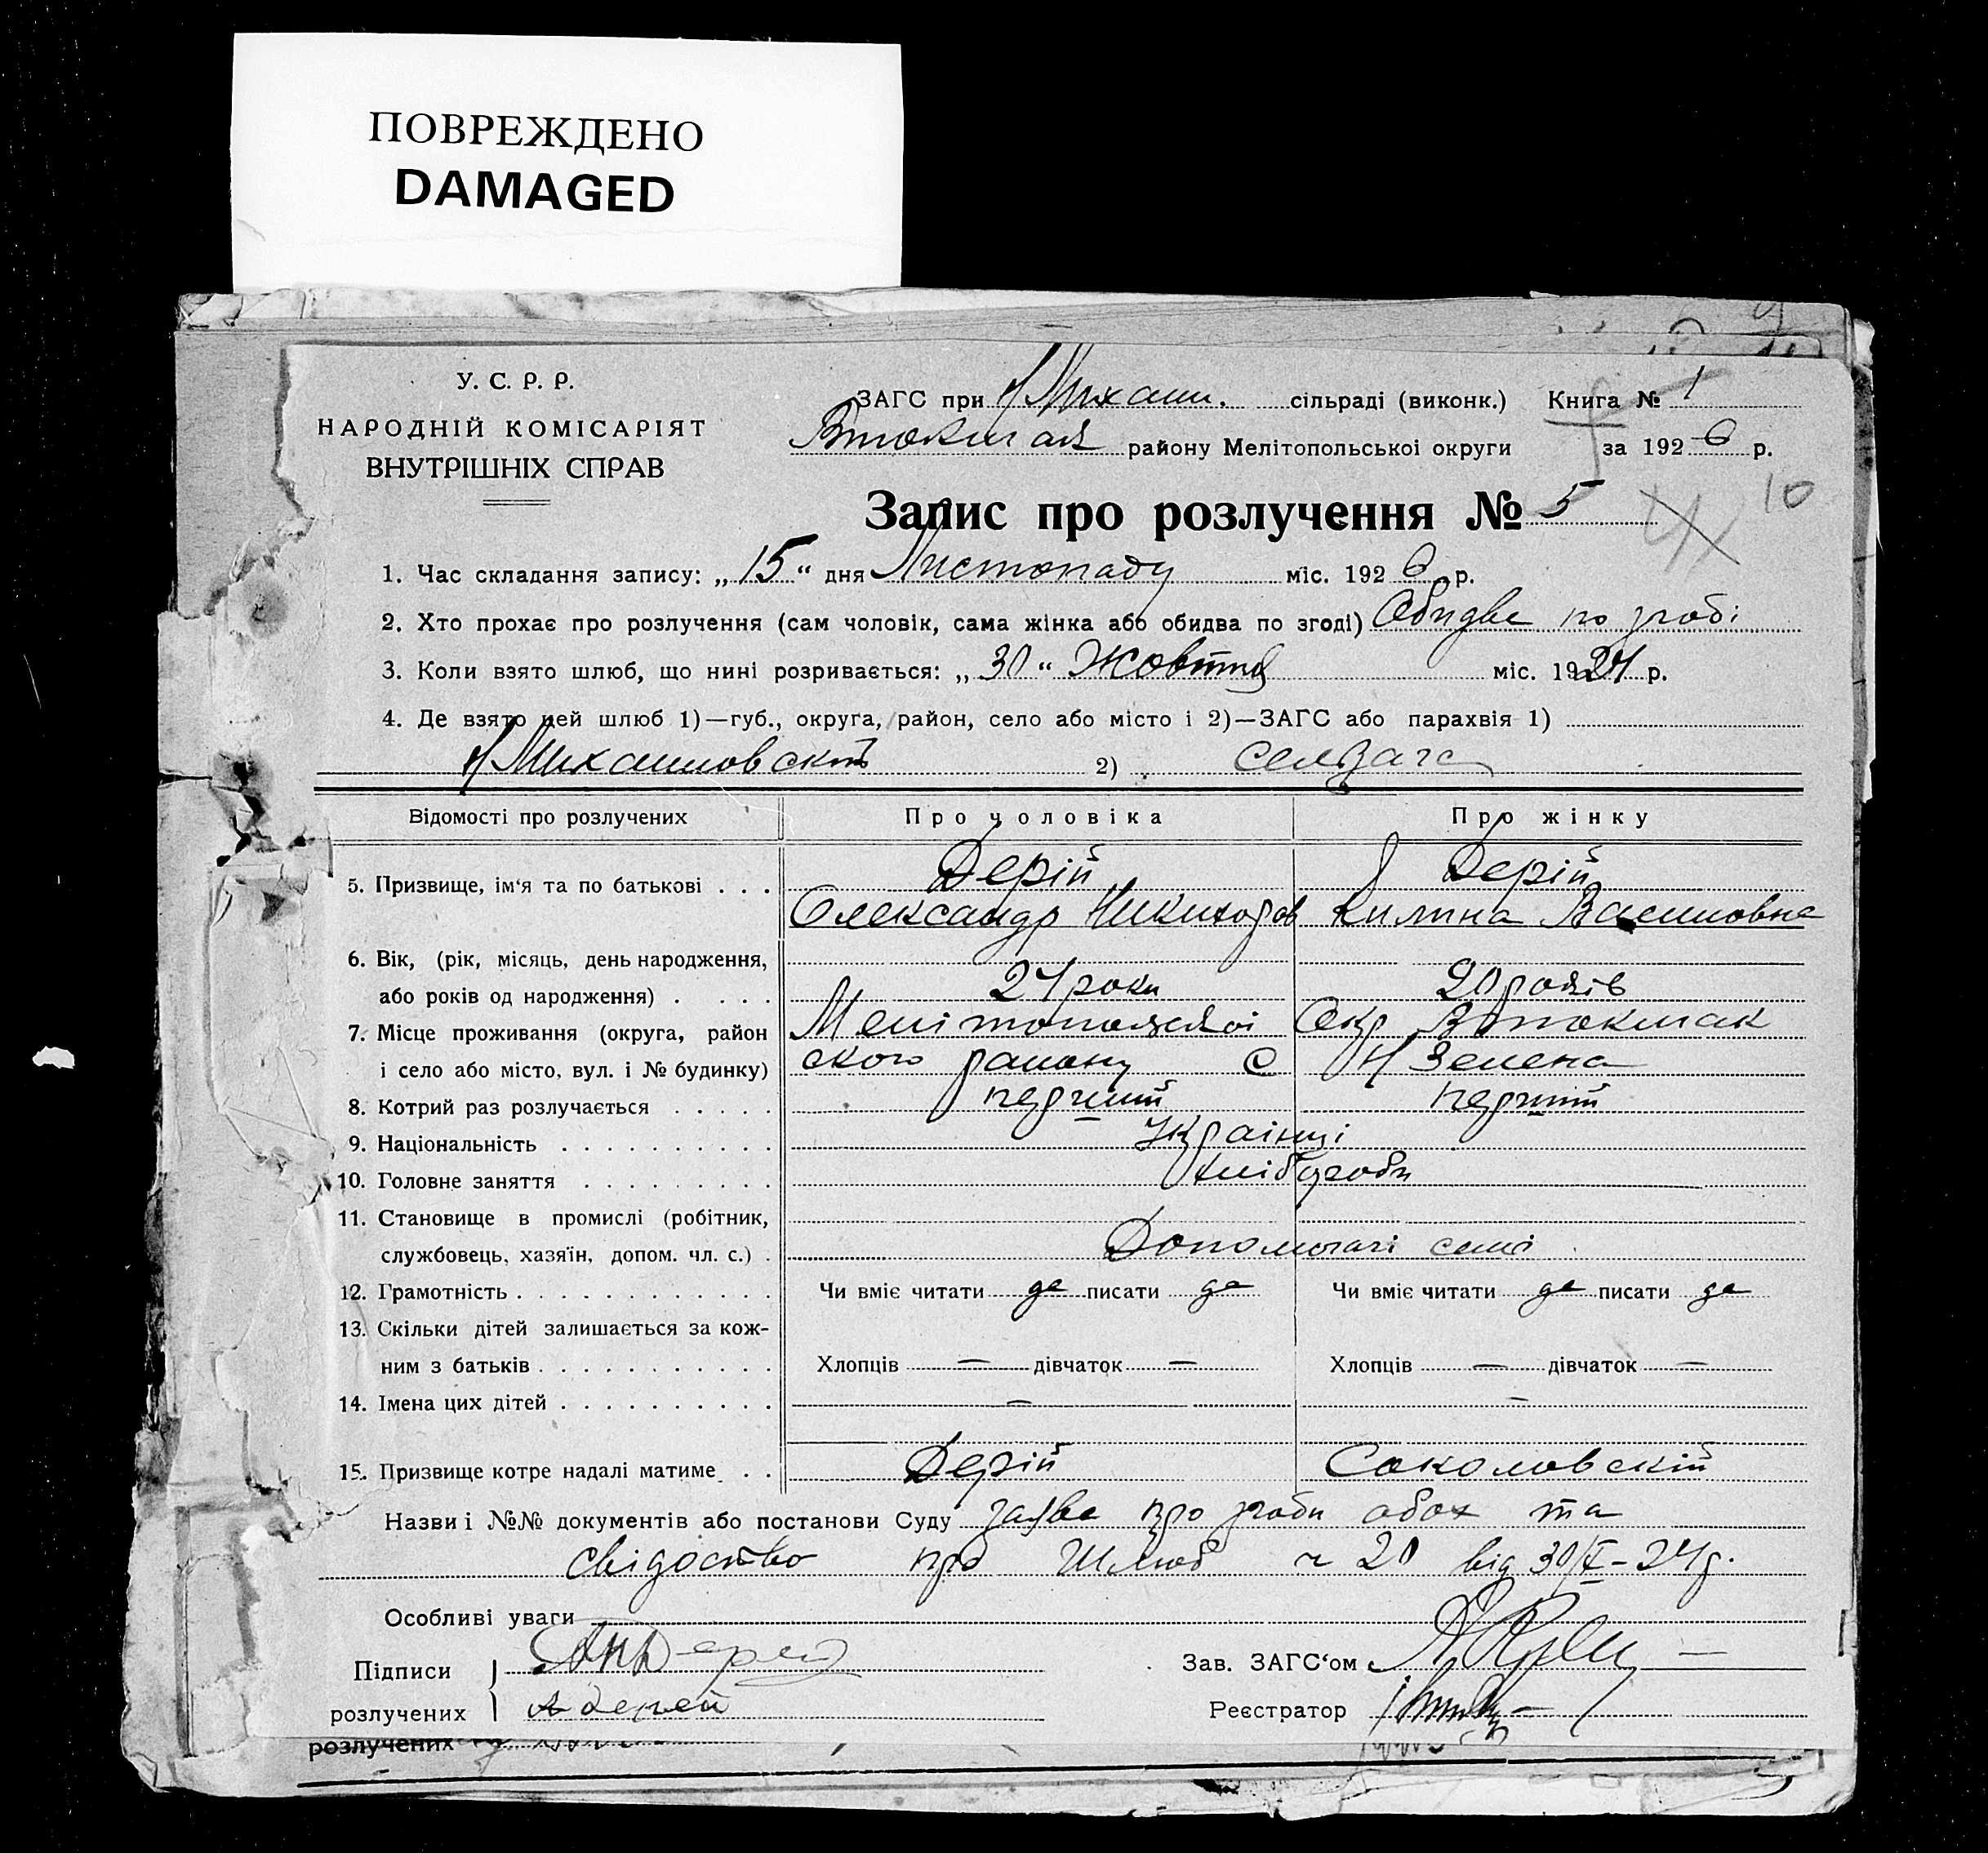 ПОВРЕЖДЕНО
DAMAGED
У. С. Р. Р.
НАРОДНІЙ КОМІСАРІЯТ
ВНУТРІШНІХ СПРАВ
ЗАГС при Михайл. сільраді (виконк.) Книга № 1
Втокмак району Мелітопольської округи за 1926 р.
10
Запис про розлучення № 5
1. Час складання запису: „15“ дня Листопаду міс. 1926 р.
2. Хто прохає про розлучення (сам чоловік, сама жінка або обидва по згоді) Обидве по згоді
3. Коли взято шлюб, що нині розривається: „30“ Жовтня міс. 1924 р.
4. Де взято цей шлюб 1)—губ., округа, район, село або місто і 2)—ЗАГС або парахвія 1)
Михайловскій 2) СелЗагс
Відомості про розлучених Про чоловіка Про жінку
5. Призвище, ім‘я та по батькові . . . Дерій Дерій
Олександр Никифоров Килина Василовна
6. Вік, (рік, місяць, день народження,
або років од народження) . . . . 24 роки 20 років
7. Місце проживання (округа, район Мелітопольскоі Окр Втокмак
і село або місто, вул. і № будинку) ского району С Н Зелена
8. Котрий раз розлучається . . . . . перший перший
9. Національність . . . . . . . . . . Українці
10. Головне заняття . . . . . . . . . хлібороби
11. Становище в промислі (робітник,
службовець, хазяїн, допом. чл. с.) . Допомогачі семі
12. Грамотність . . . . . . . . . . . . Чи вміє читати да писати да Чи вміє читати да писати да
13. Скільки дітей залишається за кож-
ним з батьків . . . . . . . . . . . Хлопців — дівчаток — Хлопців — дівчаток —
14. Імена цих дітей . . . . . . . . . . — —
15. Призвище котре надалі матиме . . Дерій Соколовскій
Назви і №№ документів або постанови Суду заява про згоду обох та
свідоство про Шлюб ч 20 від 30/X - 24 р.
Особливі уваги
Підписи Зав. ЗАГС‘ом
розлучених А Дерей Реєстратор
розлучених